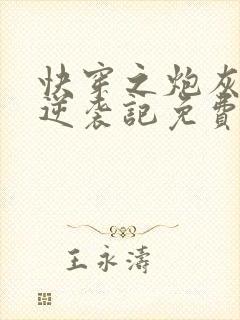 快穿之炮灰
逆袭記免費
王永濤